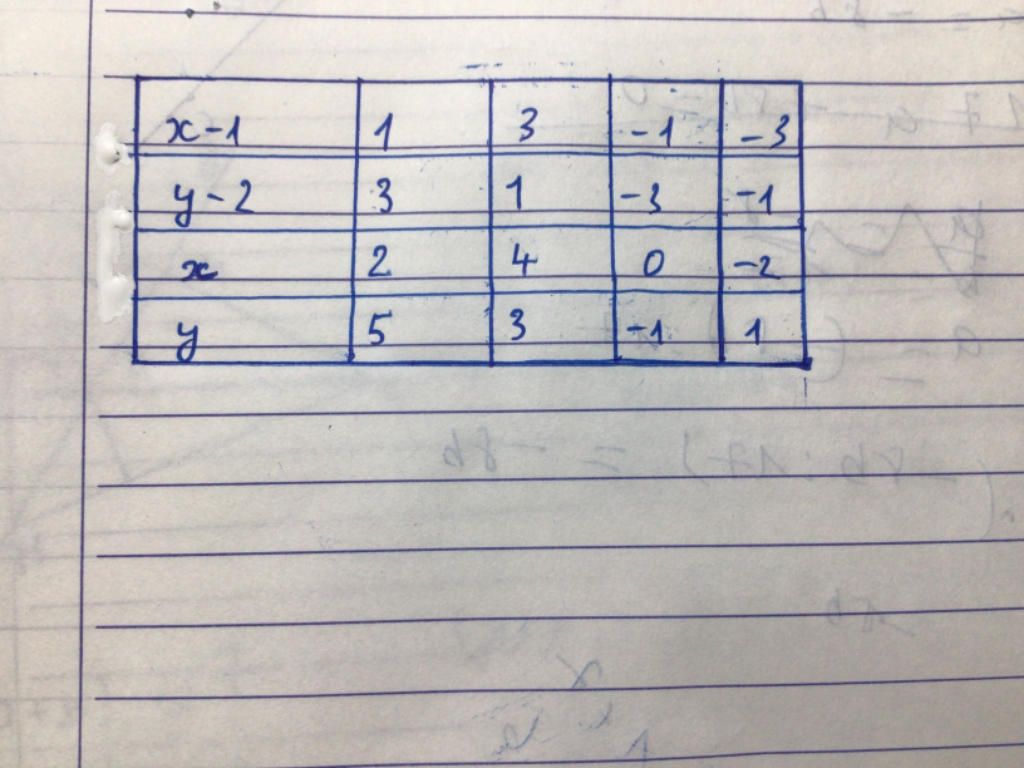 x-1 1 3 -1 -3
y-2 3 1 -3 -1
x 2 4 0 -2
y 5 3 -1 1